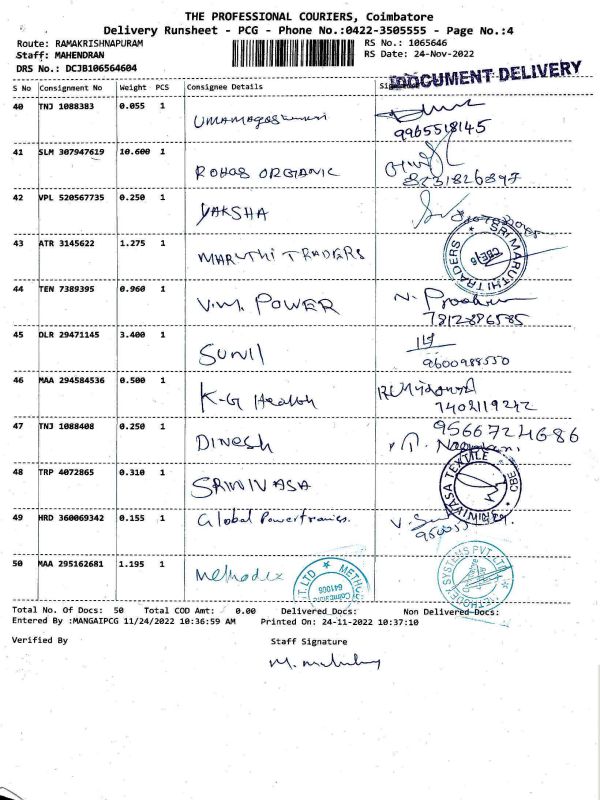 THE PROFESSIONAL COURIERS, Coimbatore
Delivery Runsheet - PCG - Phone No.:0422-3505555 - Page No.:4
Route: RAMAKRISHNAPURAM RS No.: 1065646
Staff: MAHENDRAN RS Date: 24-Nov-2022
DRS No.: DCJB106564604
DOCUMENT DELIVERY
S No Consignment No Weight PCS Consignee Details
40 TNJ 1088383 0.055 1
9965518145
41 SLM 307947619 10.600 1 ROHAS ORGANIC
8231826897
42 VPL 520567735 0.250 1 YAKSHA
43 ATR 3145622 1.275 1 MARUTHI TRADERS
SRI MARUTHI TRADERS CBE
44 TEN 7389395 0.960 1 V.M. POWER
7812886585
45 DLR 29471145 3.400 1 SUNIL
9600988550
46 MAA 294584536 0.500 1 K-G Health
7402119242
47 TNJ 1088408 0.250 1 DINESH
9566724686
48 TRP 4072865 0.310 1 SRINIVASA
SRINIVASA TEXTILE CBE
49 HRD 360069342 0.155 1 Global Powertronics.
50 MAA 295162681 1.195 1 Methodex
METHODEX SYSTEMS PVT. LTD
Total No. Of Docs: 50 Total COD Amt: 0.00 Delivered Docs: Non Delivered Docs:
Entered By :MANGAIPCG 11/24/2022 10:36:59 AM Printed On: 24-11-2022 10:37:10
Verified By Staff Signature